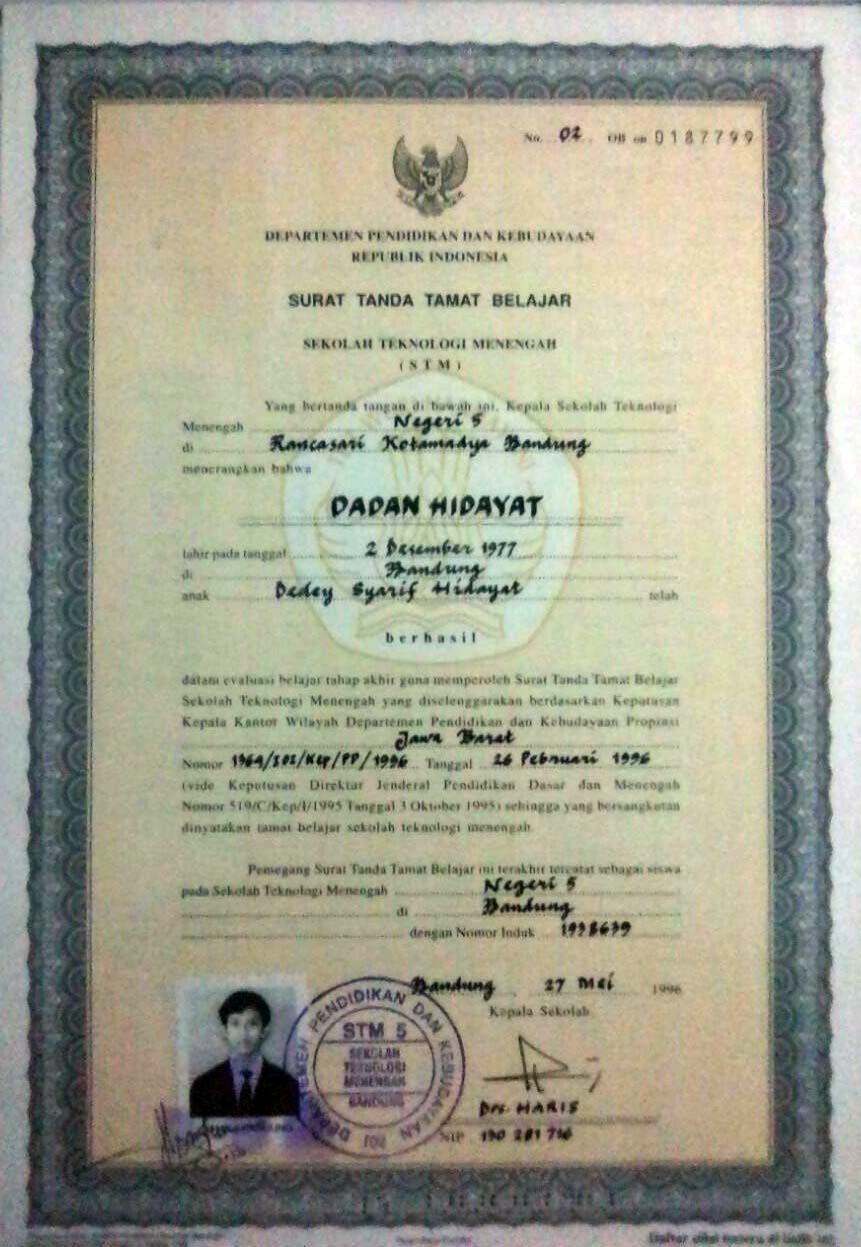 No. 02 OB on 0187799
DEPARTEMEN PENDIDIKAN DAN KEBUDAYAAN
REPUBLIK INDONESIA
SURAT TANDA TAMAT BELAJAR
SEKOLAH TEKNOLOGI MENENGAH
( S T M )
Yang bertanda tangan di bawah ini, Kepala Sekolah Teknologi
Menengah Negeri 5
di Rancasari Kotamadya Bandung
menerangkan bahwa
DADAN HIDAYAT
lahir pada tanggal 2 Desember 1977
di Bandung
anak Dedey Syarif Hidayat telah
berhasil
dalam evaluasi belajar tahap akhir guna memperoleh Surat Tanda Tamat Belajar
Sekolah Teknologi Menengah yang diselenggarakan berdasarkan Keputusan
Kepala Kantor Wilayah Departemen Pendidikan dan Kebudayaan Propinsi
Jawa Barat
Nomor 1964/I02/Kep/PP/1996 Tanggal 26 Pebruari 1996
(vide Keputusan Direktur Jenderal Pendidikan Dasar dan Menengah
Nomor 519/C/Kep/I/1995 Tanggal 3 Oktober 1995) sehingga yang bersangkutan
dinyatakan tamat belajar sekolah teknologi menengah.
Pemegang Surat Tanda Tamat Belajar ini terakhir tercatat sebagai siswa
pada Sekolah Teknologi Menengah Negeri 5
di Bandung
dengan Nomor Induk 1938639
Bandung, 27 Mei 1996
Kepala Sekolah
DEPARTEMEN PENDIDIKAN DAN KEBUDAYAAN
STM 5
SEKOLAH
TEKNOLOGI
MENENGAH
BANDUNG
Drs. HARIS
NIP 130 281 716